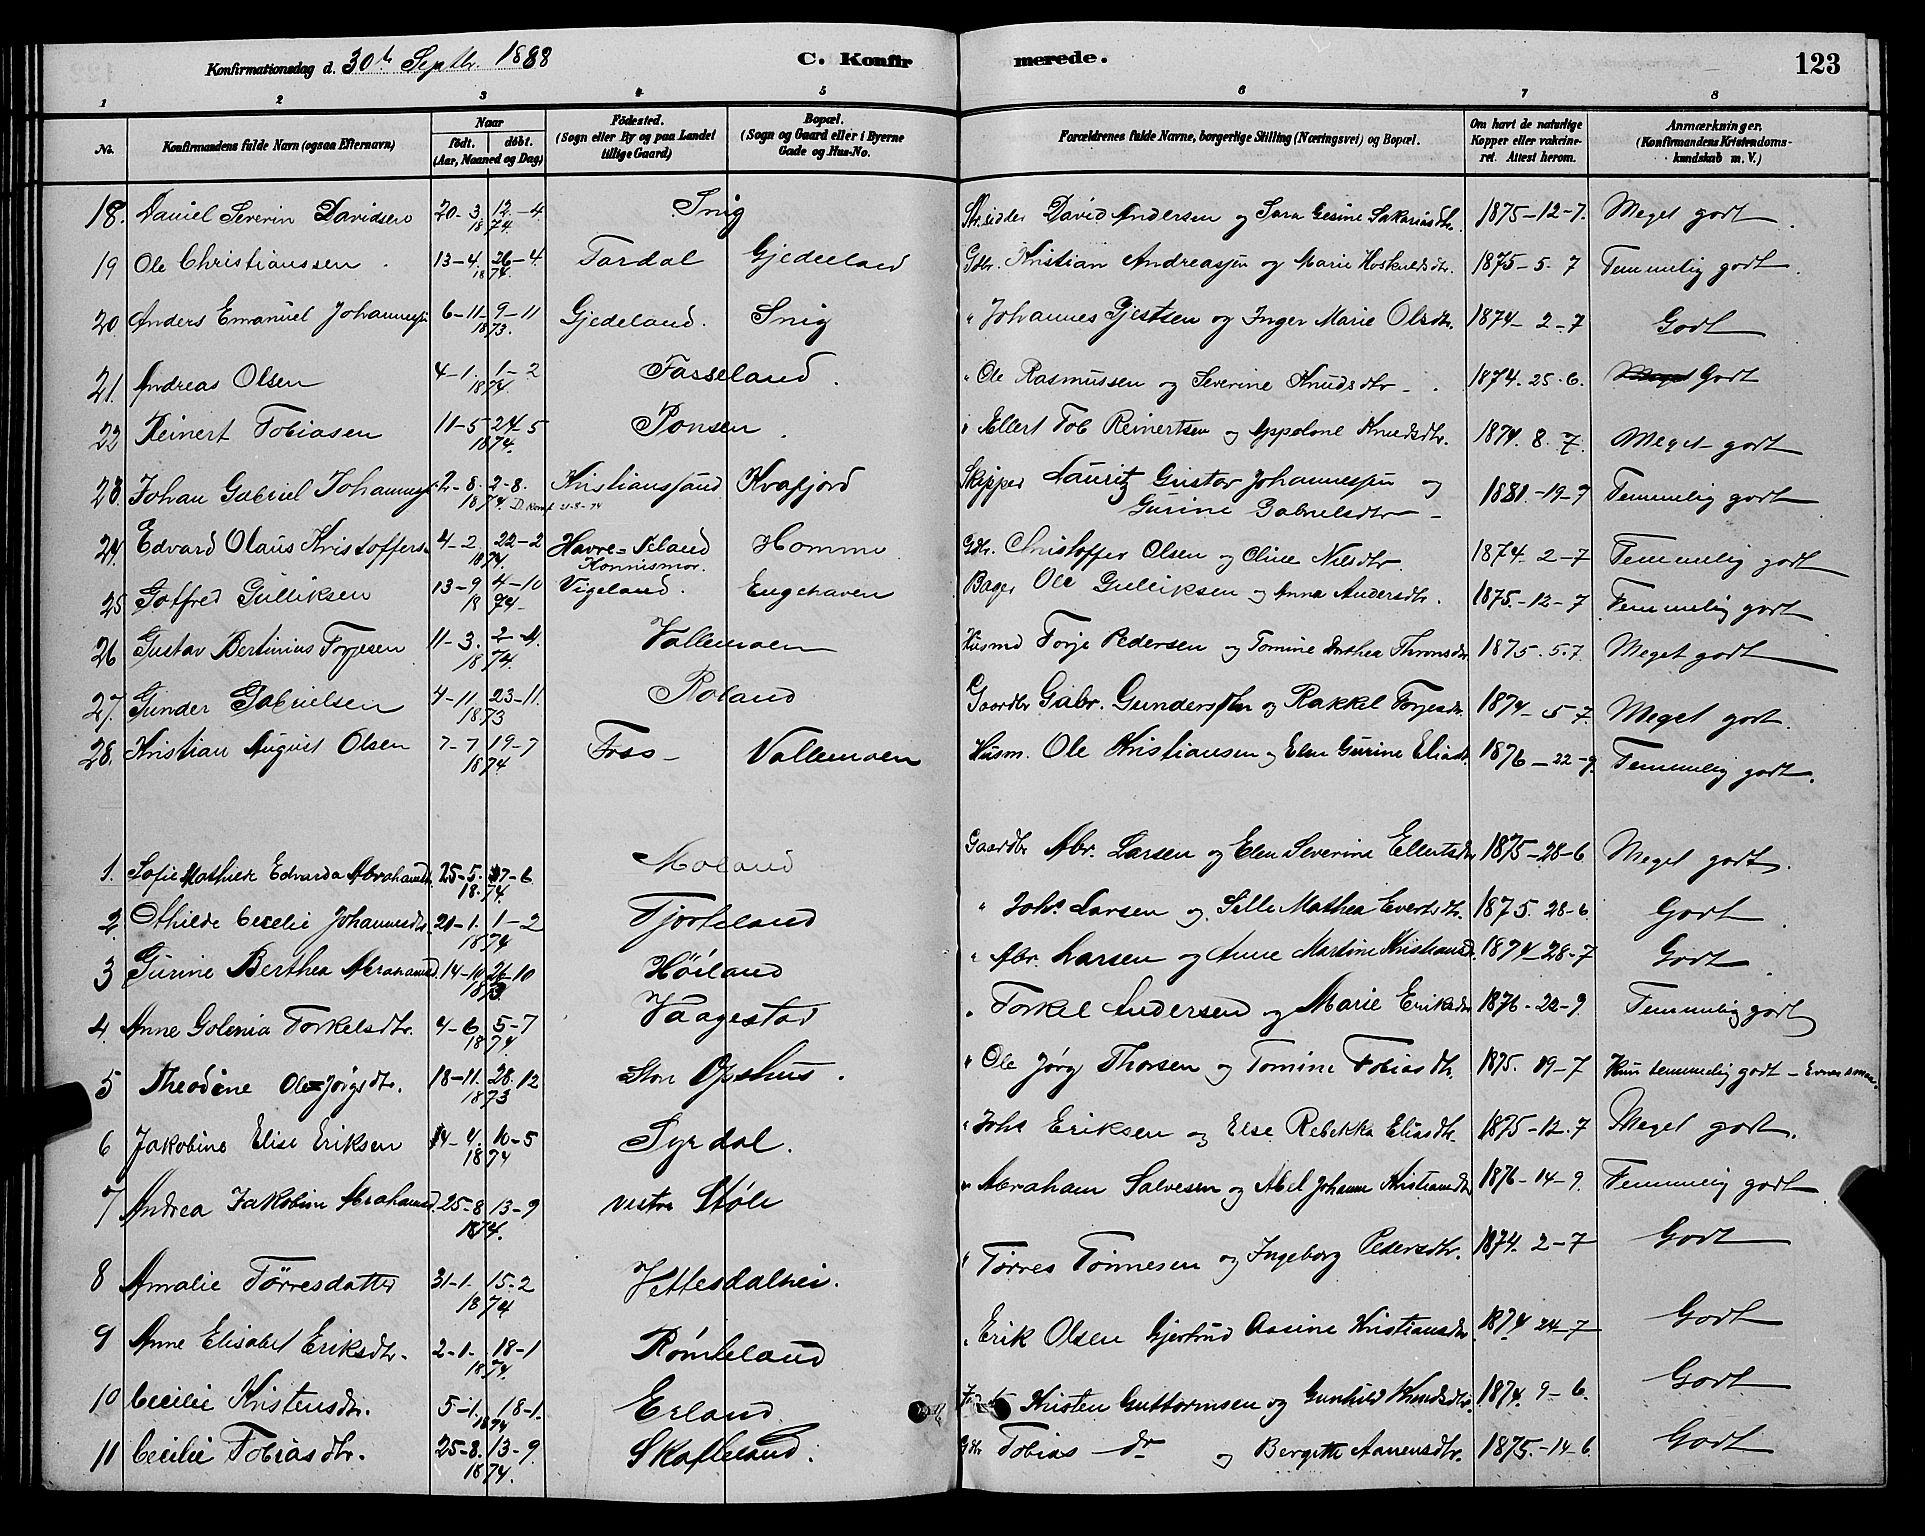 Konfirmationsdag d. 30te Septbr. 1888 C. Konfirmerede. 123
1 2 3 4 5 6 7 8
No. Konfirmandens fulde Navn (ogsaa Efternavn) Naar født. døbt. (Aar, Maaned og Dag) Födested. (Sogn eller By og paa Landet tillige Gaard) Bopæl. (Sogn og Gaard eller i Byerne Gade og Hus-No. Forældrenes fulde Navne, borgerlige Stilling (Næringsvei) og Bopæl. Om havt de naturlige Kopper eller vaksineret. Attest herom. Anmærkninger. (Konfirmandens Kristendomskundskab m. V.)
18. Daniel Severin Davidsen 20-3. 12-4. 1874. Snig David Andersen og Sara Gesine Sakariasdtr. 1875-12-7. Meget godt
19 Ole Christianssen 13-4. 26-4. 1874. Tardal Gjedeland Gdbr. Kristian Andreassen og Marie Hoskuldsdtr. 1875-5-7 Temmelig godt.
20. Anders Emanuel Johannesen 6-11 9-11 1873. Gjedeland. Snig " Johannes Gjertsen og Inger Marie Olsdtr. 1874-2-7 Godt
21. Andreas Olsen 4-1. 1-2 1874. Fasseland. " Ole Rasmussen og Severine Knudsdtr 1874-25-6. Godt
22 Reinert Tobiasen 11-5 24-5 1874. Ponsen. " Ellert Tob Reinertsen og Appolone Knudsdtr. 1874. 8. 7. Meget godt
23. Johan Gabriel Johannes 2-8. 2-8. 1874. D. Konf 21-8-74 Kristianssand Kvafjord Skipper Lauritz Gustav Johannessen og Gurine Gabrielsdtr 1881-19-7 Temmelig godt
24. Edvard Olaus Kristoffers. 4-2. 22-2 1874. Havre= Konnismor. Homme Gdbr. Christoffer Olsen og Oline Nilsdtr. 1874-2-7 Temmelig godt
25 Gotfred Gulliksen 13-9 4-10 1874 Vigeland. Engehaven Bager Ole Gulliksen og Anna Andersdtr. 1875-12-7 Temmelig godt
26 Gustav Bertinius Torjesen 11-3. 2-4. 1874. Vallemoen Husmd Torje Pedersen og Tomine Dorthea Thronsdtr 1875. 5.7 Meget godt
27. Gunder Gabrielsen 4-11. 23-11. 1873 Roland Gaardbr Gabr. Gundersen og Rakkel Torjesdtr. 1874-5-7. Meget godt.
28. Kristian August Olsen 7-7 19-7 1874 Foss Vallemoen Husm. Ole Kristiansen og Elen Gurine Eliasdt 1876-22-9. Temmelig godt.
1. Sofie Mathilde Edvarda Abrahamsdtr 25-5. 7-6. 1874. Moland Gaardbr Abr. Larsen og Elen Severine Ellertsdtr 1875-28-6 Meget godt.
2. Athilde Cecilie Johannesdtr. 21-1. 1-2 1874 Tjorteland " Johs Larsen og Sille Mathea Evertsdtr. 1875. 28-6. Godt
3 Gurine Berthea Abrahamsd. 14-10 26-10 1873. Höiland " Abr. Larsen og Anne Martine Kristiansd. 1874-28-7 Godt
4. Anne Golenia Torkelsdtr. 4-6. 5-7 1874. Vaagestad " Torkel Andersen og Marie Eriksdtr 1876-22-9 Temmelig godt
5 Theodine Ole=Jörgsdtr. 18-11. 28.12 1873 Stor Opshus. " Ole Jörg Thorsen og Tomine Tobiasdtr. 1875. 19-7 Kun temmelig godt - Evnesvag.
6 Jakobine Elise Eriksen 14-4. 10-5 1874 Syrdal. " Johs Eriksen og Else Rebekka Eliasdtr. 1875-12.7 Meget godt.
7 Andrea Jakobine Abrahamsd. 25-8. 13-9 1874. vestre Støle " Abraham Salvesen og Abel Johanne Kristiansdtr 1876-14-9. Temmelig godt
8 Amalie Törresdatter 31-1. 15-2 1874 Vettesdalhei. " Tørres Tönnesen og Ingeborg Pedersdtr. 1874. 2-7 Godt
9 Anne Elisabet Eriksdtr. 2-1. 18-1 1874. Rømteland " Erik Olsen Gjertrud Aasine Kristiansdtr. 1874 24-7 Godt
10 Cecilie Kristensdtr. 5-1. 18-1. 1874 Erland Kristen Guttormsen og Gunhild Knudsdtr. 1874. 9-6. Godt
11 Cecilie Tobiasdtr. 25-8. 13-9. 1874. Skofteland. Gdbr Tobias og Bergitte Aanensdtr. 1875.-14-6. Godt